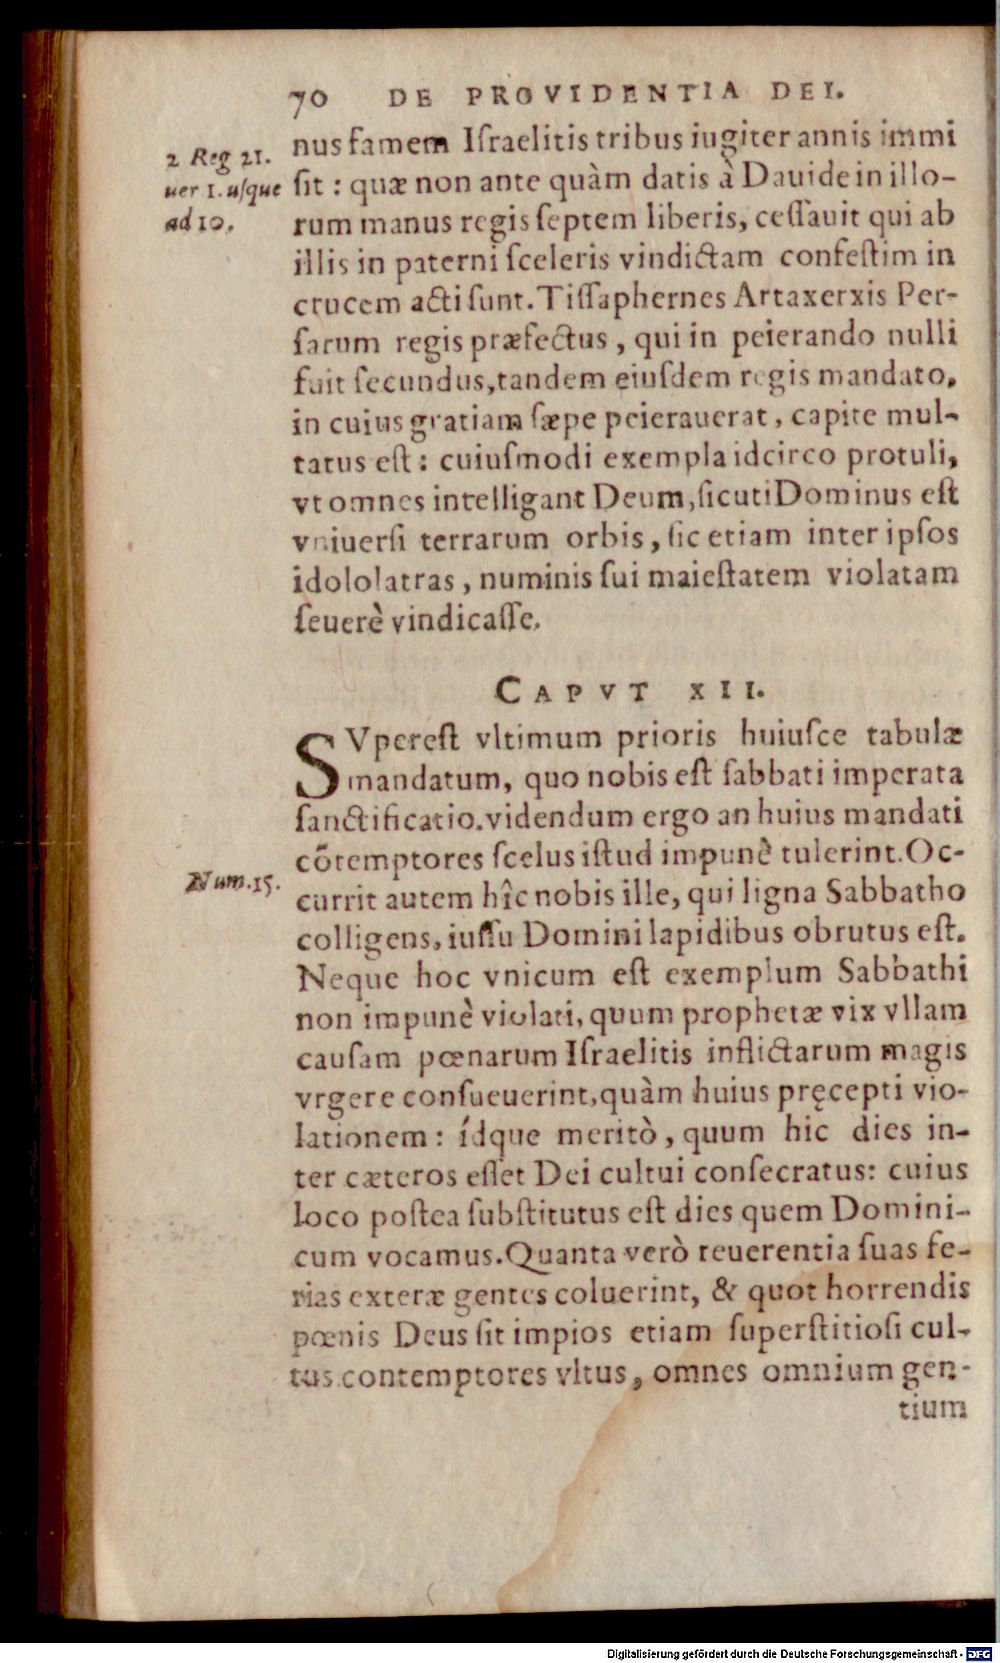 70 DE PROVIDENTIA DEI.
2 Reg 21.
uer 1. uſque
ad 10.
nus famem Iſraelitis tribus iugiter annis immi
ſit : quæ non ante quàm datis à Dauide in illo-
rum manus regis ſeptem liberis, ceſſauit qui ab
illis in paterni ſceleris vindictam confeſtim in
crucem acti ſunt. Tiſſaphernes Artaxerxis Per-
ſarum regis præfectus, qui in peierando nulli
fuit ſecundus, tandem eiuſdem regis mandato,
in cuius gratiam ſæpe peierauerat, capite mul-
tatus eſt : cuiuſmodi exempla idcirco protuli,
vt omnes intelligant Deum, ſicuti Dominus eſt
vniuerſi terrarum orbis, ſic etiam inter ipſos
idololatras, numinis ſui maieſtatem violatam
ſeuerè vindicaſſe.
CAPVT XII.
SVpereſt vltimum prioris huiuſce tabulæ
mandatum, quo nobis eſt ſabbati imperata
ſanctificatio. videndum ergo an huius mandati
cōtemptores ſcelus iſtud impunè tulerint. Oc-
Num. 15.
currit autem hîc nobis ille, qui ligna Sabbatho
colligens, iuſſu Domini lapidibus obrutus eſt.
Neque hoc vnicum eſt exemplum Sabbathi
non impunè violati, quum prophetæ vix vllam
cauſam pœnarum Iſraelitis inflictarum magis
vrgere conſueuerint, quàm huius pręcepti vio-
lationem : ídque meritò, quum hic dies in-
ter cæteros eſſet Dei cultui conſecratus : cuius
loco poſtea ſubſtitutus eſt dies quem Domini-
cum vocamus. Quanta verò reuerentia ſuas fe-
rias exteræ gentes coluerint, & quot horrendis
pœnis Deus ſit impios etiam ſuperſtitioſi cul-
tus contemptores vltus, omnes omnium gen-
tium
Digitalisierung gefördert durch die Deutsche Forschungsgemeinschaft - DFG